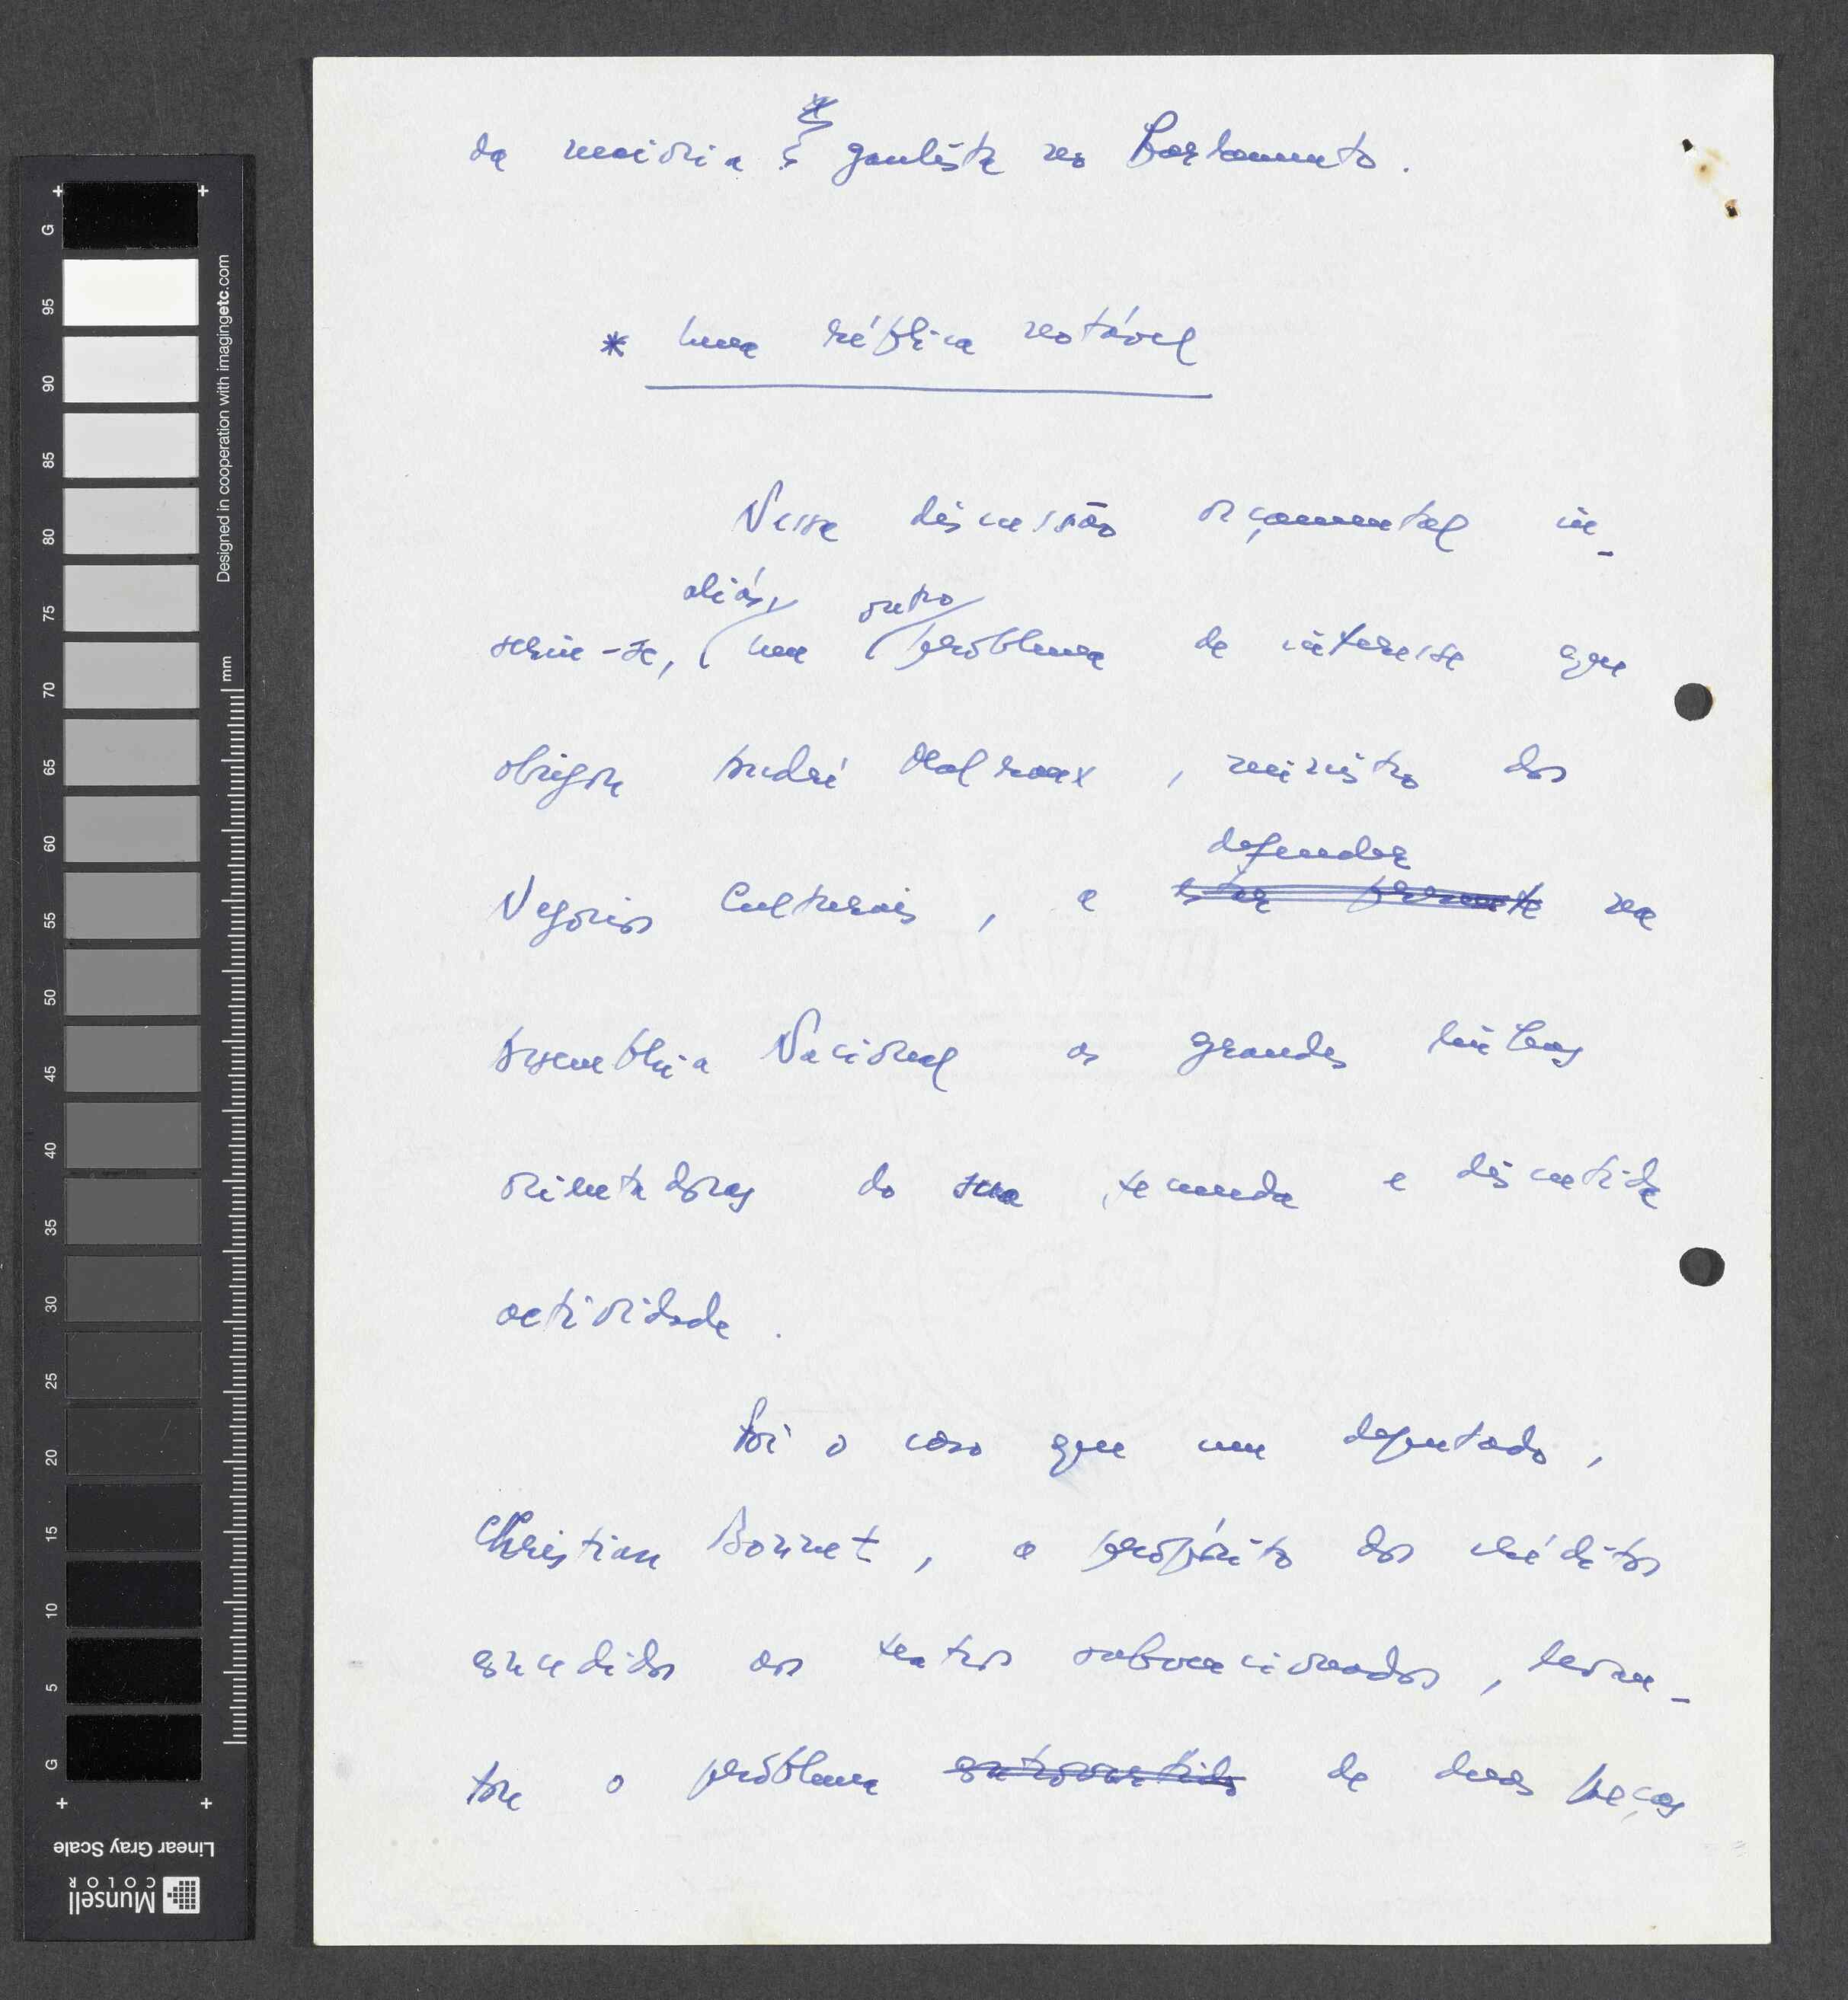 da maioria gaulista no Parlamento.
* Uma réplica notável
Nessa discussão orçamental in-
aliás, outro
screve-se, um problema de interesse que
obrigou André Malraux, ministro dos
defender
Negócios Culturais, a estar presente na
Assembleia Nacional as grandes linhas
orientadoras da sua fecunda e discutida
actividade.
Foi o caso que um deputado,
Christian Bonnet, a propósito dos créditos
concedidos aos teatros subvencionados, levan-
tou o problema de duas peças
G
95
90
85
80
75
70
65
60
55
50
45
40
35
30
25
20
15
10
5
G
Designed in cooperation with imagingetc.com
mm
Linear Gray Scale
Munsell
COLOR